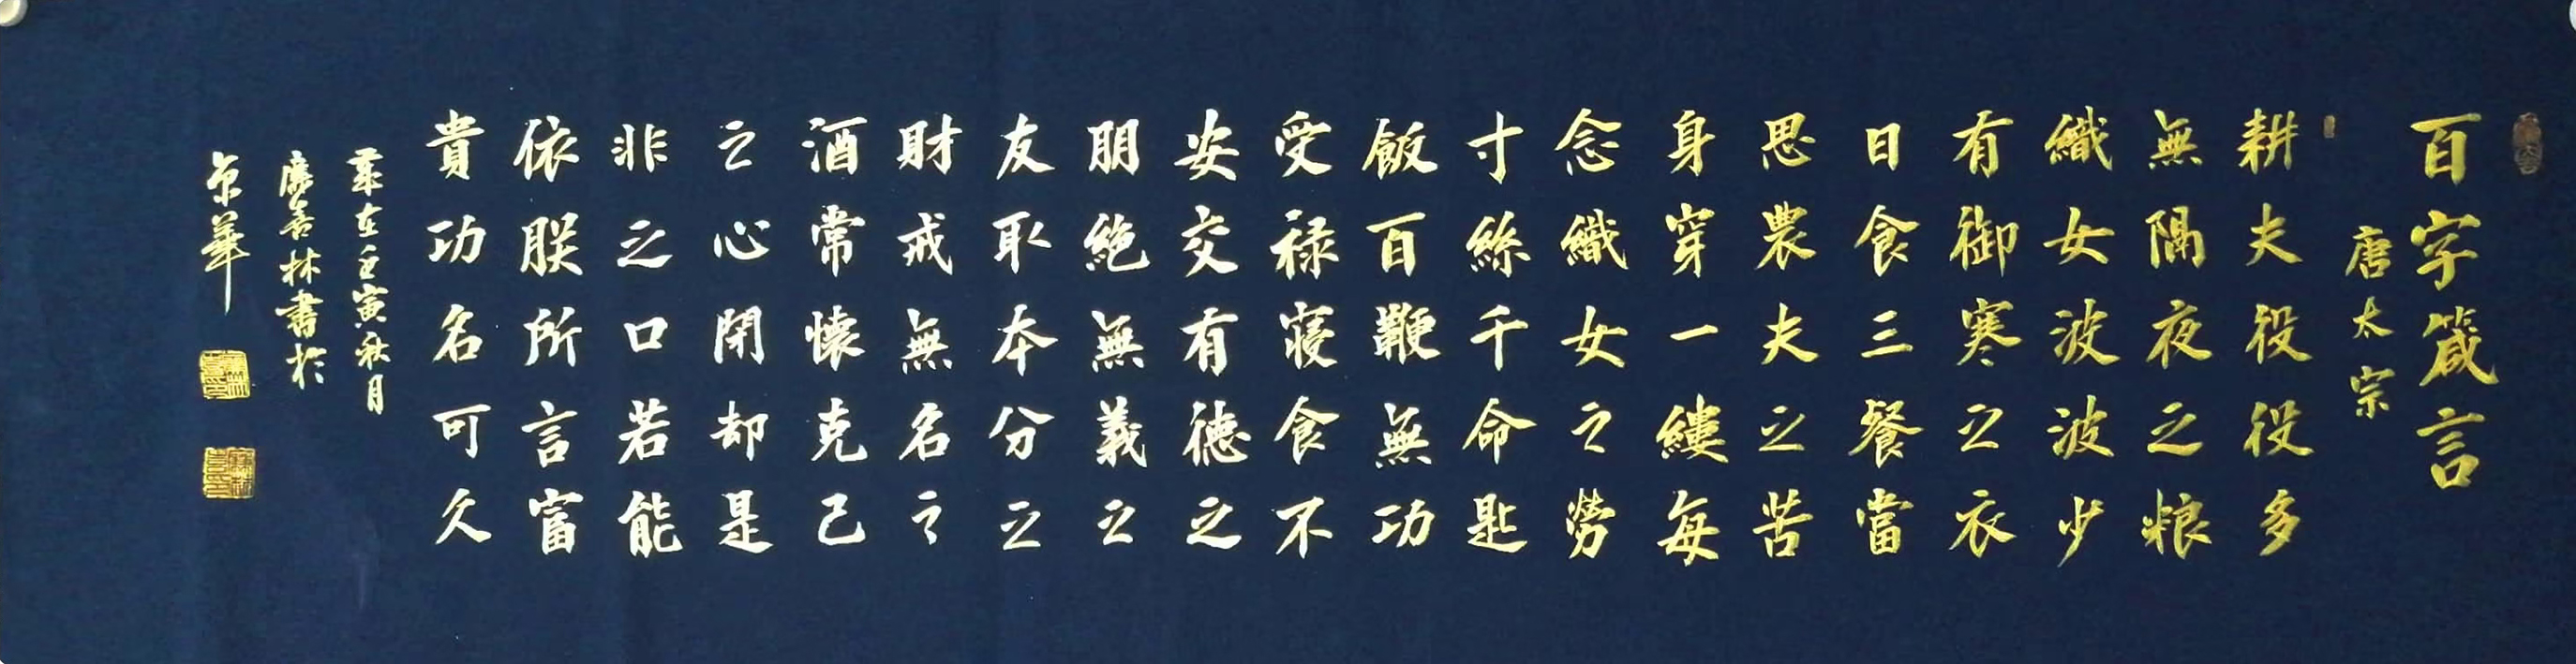 百字箴言
唐太宗
耕夫役役多
無隔夜之粮
織女波波少
有御寒之衣
日食三餐當
思農夫之苦
身穿一縷每
念織女之勞
寸絲千命匙
飯百鞭無功
受禄寝食不
安交有德之
朋絕無義之
友取本分之
財戒無名之
酒常懷克己
之心閉却是
非之口若能
依朕所言富
貴功名可久
歲在壬寅秋月
善林書於
京華